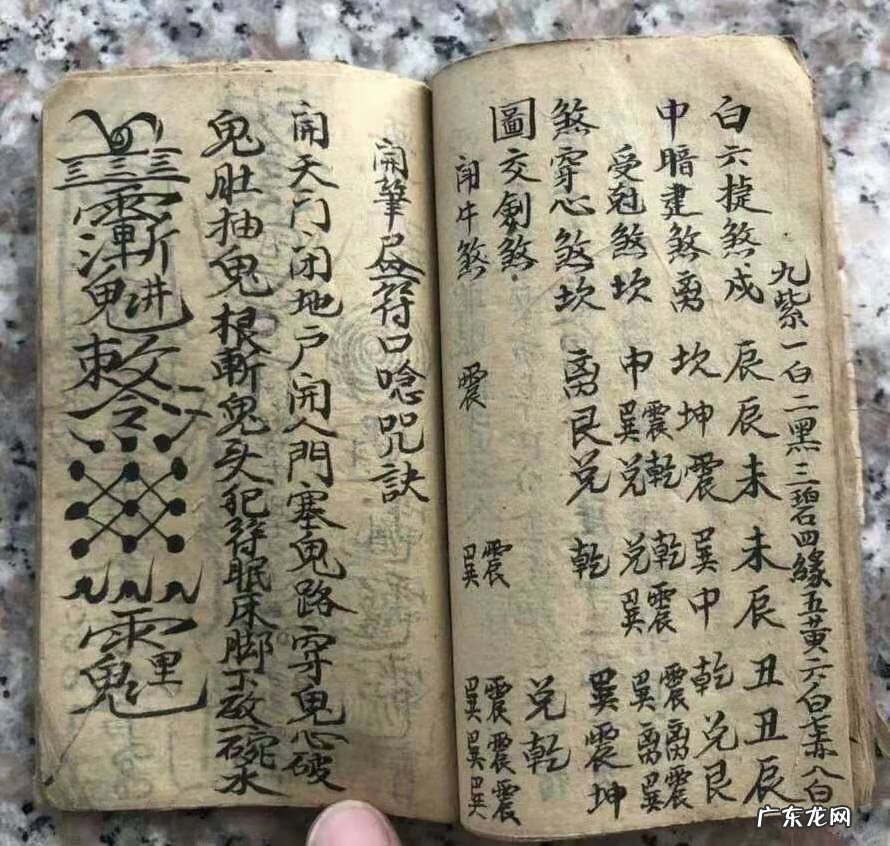 九紫一白二黑三碧四緣五黄六白七赤八白
白六捷煞戍辰辰未未辰丑丑辰
中暗建煞离坎坤震巽中乾兑艮
受尅煞坎申震巽乾兑乾兑震巽震巽离离震巽
煞穿心煞坎离艮兑乾巽震坤
圖交劍煞兑乾
闹牛煞震震巽震巽震巽震巽
開筆昼符口唸咒訣
開天门闭地户開人門塞鬼路穿鬼心破
鬼肚抽鬼根斬鬼头犯符眠床脚下放一碗水
三三三敕令
广东龙网